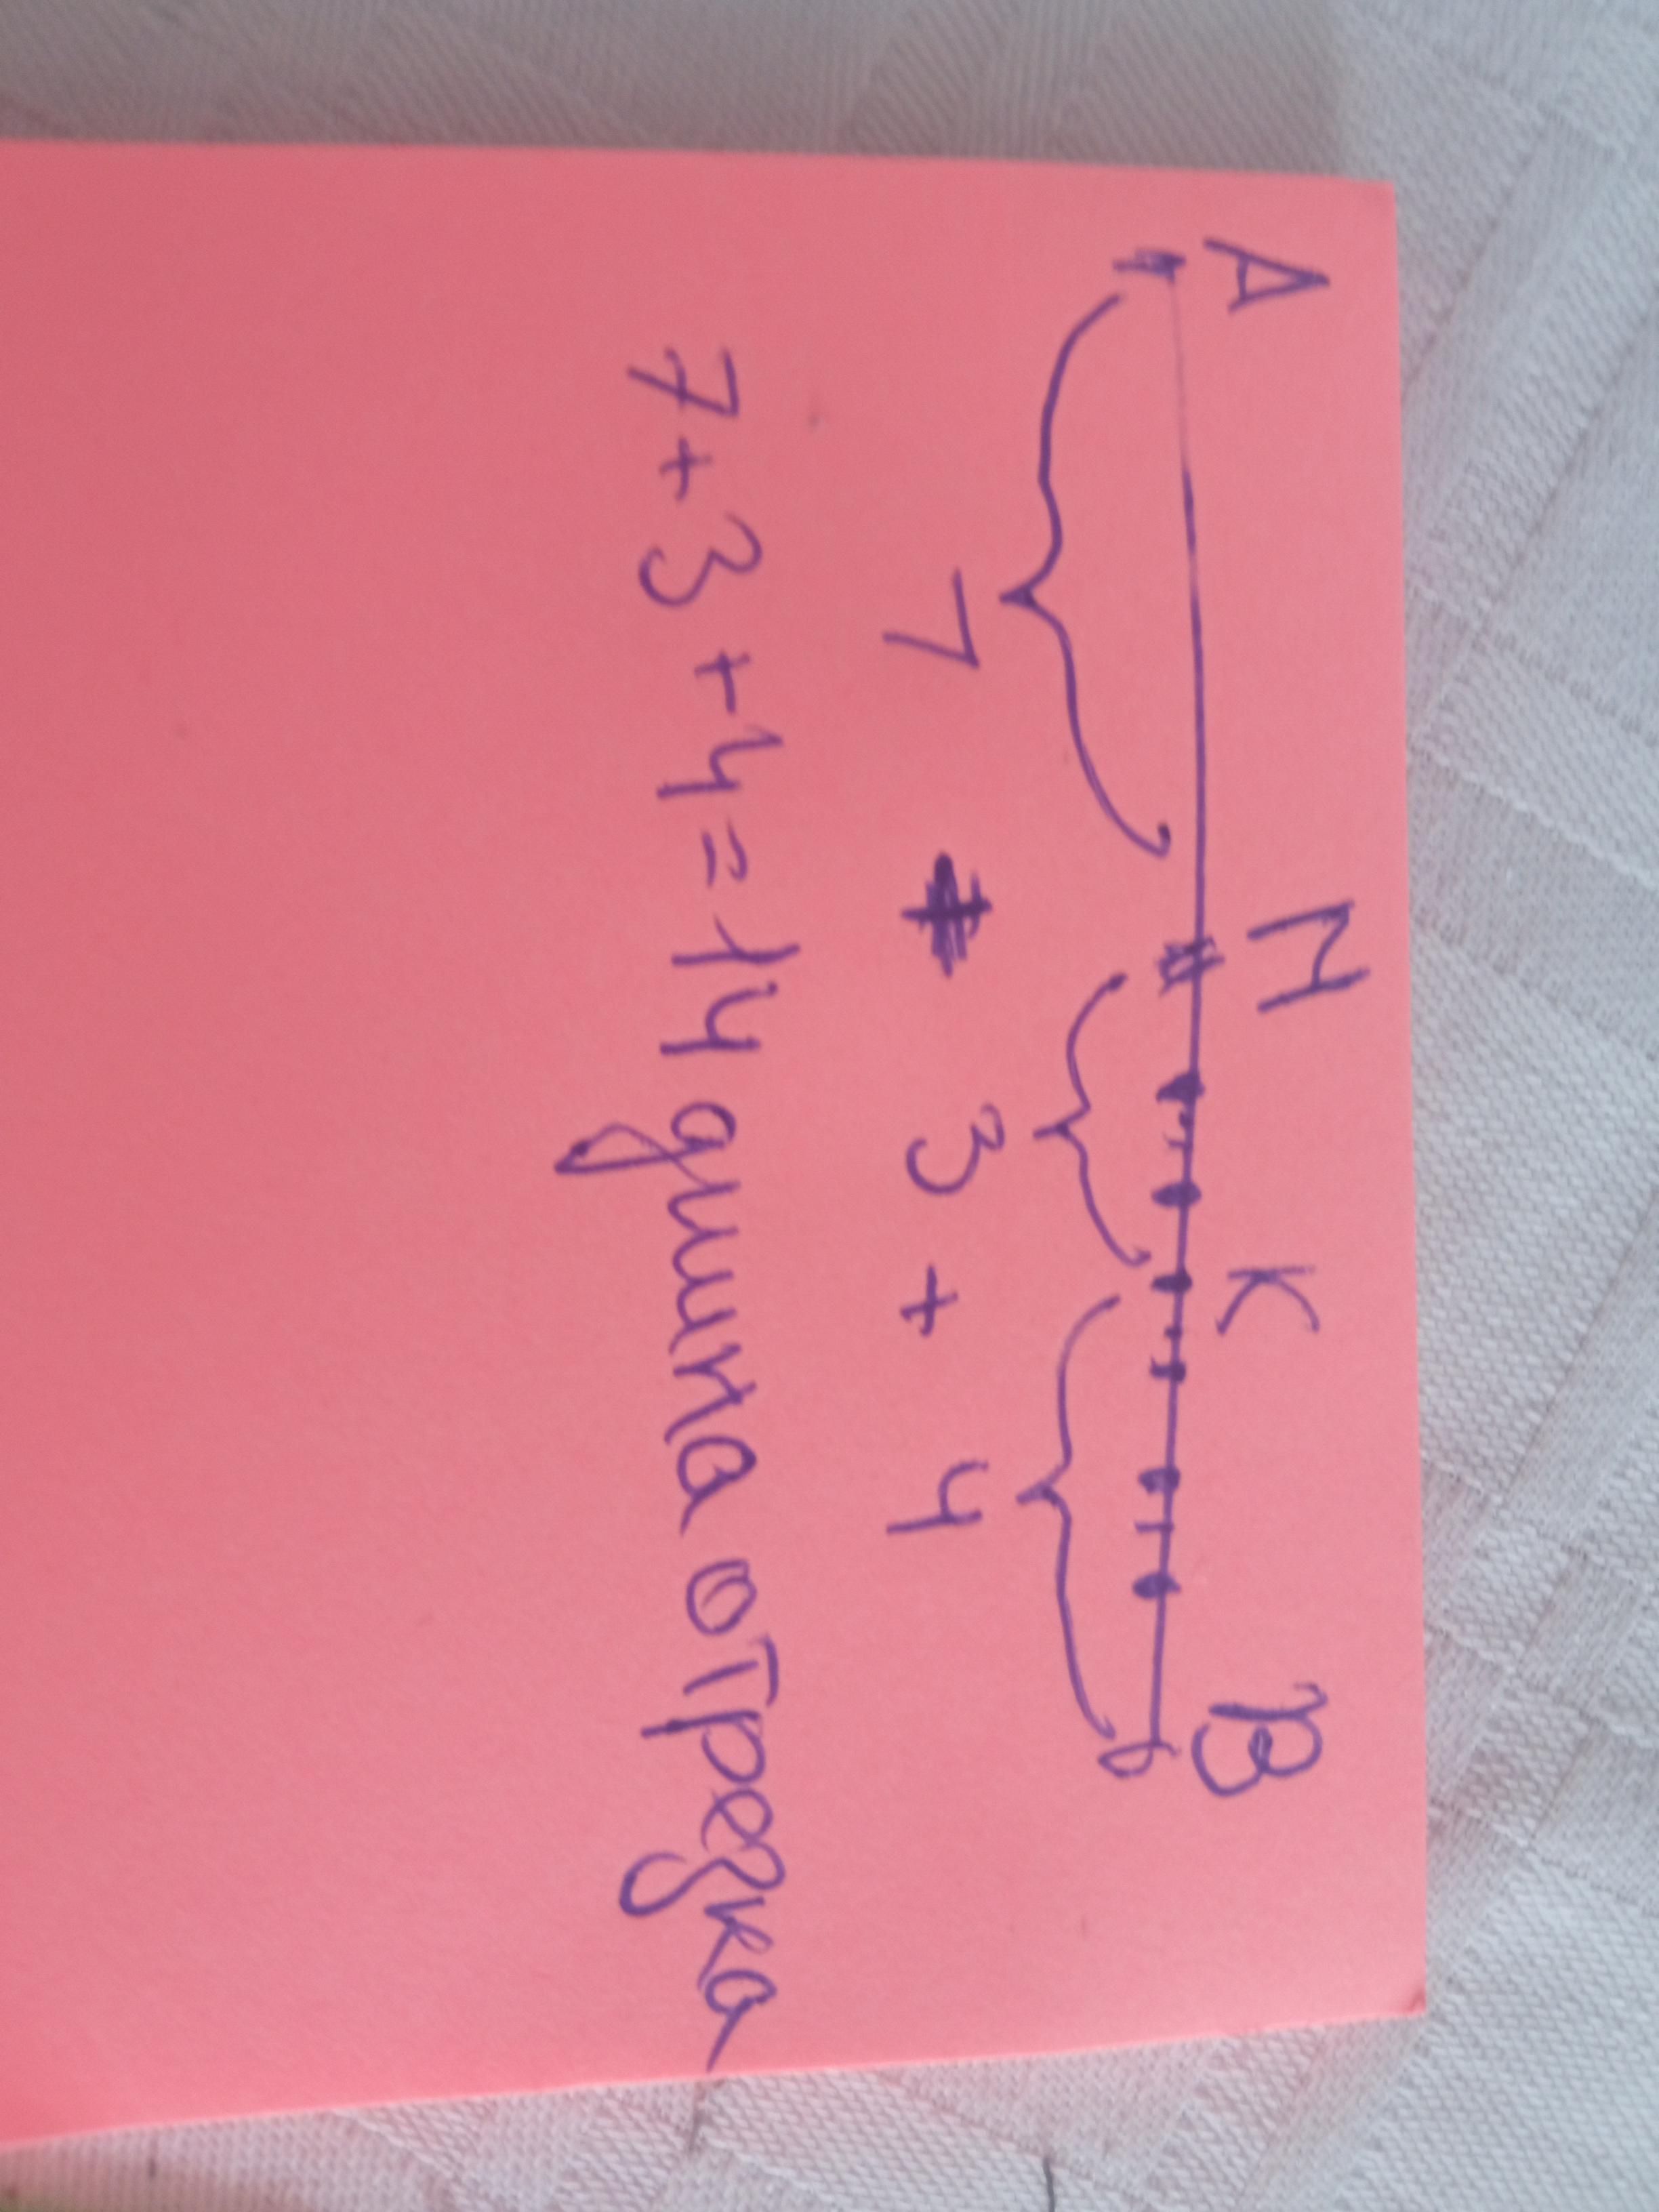 А М К В
7 3 + 4
7 + 3 + 4 = 14 длина отрезка